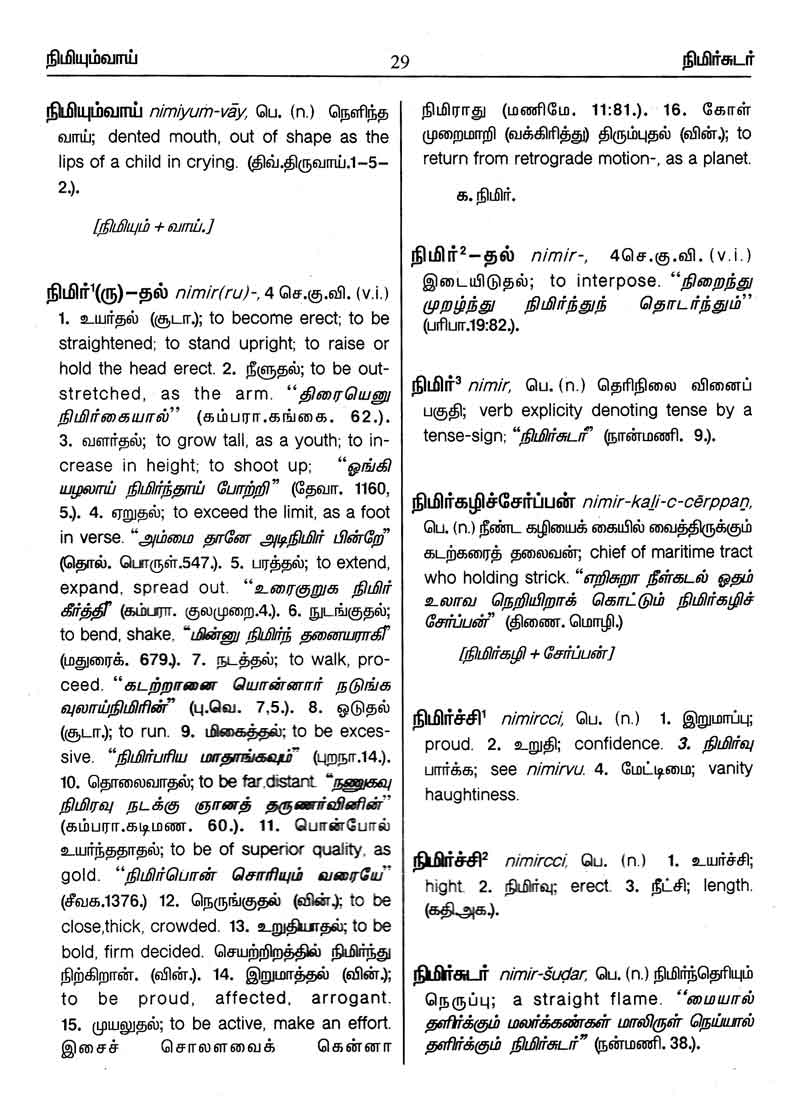 நிமியும்வாய்
29
நிமிர்சுடர்
நிமியும்வாய் nimiyum-vāy, பெ. (n.) நெளிந்த
வாய்; dented mouth, out of shape as the
lips of a child in crying. (திவ்.திருவாய்.1-5-
2.).
[நிமியும் + வாய்.]
நிமிர்¹(ரு)-தல் nimir(ru)-, 4 செ.கு.வி. (v.i.)
1. உயர்தல் (சூடா.); to become erect; to be
straightened; to stand upright; to raise or
hold the head erect. 2. நீளுதல்; to be out-
stretched, as the arm. “திரையெனு
நிமிர்கையால்” (கம்பரா.கங்கை. 62.).
3. வளர்தல்; to grow tall, as a youth; to in-
crease in height; to shoot up; “ஓங்கி
யழலாய் நிமிர்ந்தாய் போற்றி” (தேவா. 1160,
5.). 4. ஏறுதல்; to exceed the limit, as a foot
in verse. “அம்மை தானே அடிநிமிர் பின்றே”
(தொல். பொருள்.547.). 5. பரத்தல்; to extend,
expand, spread out. “உரைகுறுக நிமிர்
கீர்த்தி” (கம்பரா. குலமுறை.4.). 6. நுடங்குதல்;
to bend, shake, “மின்னு நிமிர்ந் தனையராகி”
(மதுரைக். 679.). 7. நடத்தல்; to walk, pro-
ceed. “கடற்றானை யொன்னார் நடுங்க
வுலாய்நிமிரின்” (பு.வெ. 7,5.). 8. ஓடுதல்
(சூடா.); to run. 9. மிகைத்தல்; to be exces-
sive. “நிமிர்பரிய மாதாங்கவும்” (புறநா.14.).
10. தொலைவாதல்; to be far,distant. “நணுகவு
நிமிரவு நடக்கு ஞானத் தருணர்வினின்”
(கம்பரா.கடிமண. 60.). 11. பொன்போல்
உயர்ந்ததாதல்; to be of superior quality, as
gold. “நிமிர்பொன் சொரியும் வரையே”
(சீவக.1376.) 12. நெருங்குதல் (வின்.); to be
close,thick, crowded. 13. உறுதியாதல்; to be
bold, firm decided. செயற்றிறத்தில் நிமிர்ந்து
நிற்கிறான். (வின்.). 14. இறுமாத்தல் (வின்.);
to be proud, affected, arrogant.
15. முயலுதல்; to be active, make an effort.
இசைச் சொலளவைக் கென்னா
நிமிராது (மணிமே. 11:81.). 16. கோள்
முறைமாறி (வக்கிரித்து) திரும்புதல் (வின்.); to
return from retrograde motion-, as a planet.
க. நிமிர்.
நிமிர்²-தல் nimir-, 4செ.கு.வி. (v.i.)
இடையிடுதல்; to interpose. “நிறைந்து
முறழ்ந்து நிமிர்ந்துந் தொடர்ந்தும்”
(பரிபா.19:82.).
நிமிர்³ nimir, பெ. (n.) தெரிநிலை வினைப்
பகுதி; verb explicity denoting tense by a
tense-sign; “நிமிர்சுடர்” (நான்மணி. 9.).
நிமிர்கழிச்சேர்ப்பன் nimir-kaḻi-c-cērppaṉ,
பெ. (n.) நீண்ட கழியைக் கையில் வைத்திருக்கும்
கடற்கரைத் தலைவன்; chief of maritime tract
who holding strick. “எறிசுறா நீள்கடல் ஓதம்
உலாவ நெறியிறாக் கொட்டும் நிமிர்கழிச்
சேர்ப்பன்” (திணை. மொழி.)
[நிமிர்கழி + சேர்ப்பன்]
நிமிர்ச்சி¹ nimircci, பெ. (n.) 1. இறுமாப்பு;
proud. 2. உறுதி; confidence. 3. நிமிர்வு
பார்க்க; see nimirvu. 4. மேட்டிமை; vanity
haughtiness.
நிமிர்ச்சி² nimircci, பெ. (n.) 1. உயர்ச்சி;
hight. 2. நிமிர்வு; erect. 3. நீட்சி; length.
(கதி.அக.).
நிமிர்சுடர் nimir-šuḍar, பெ. (n.) நிமிர்ந்தெரியும்
நெருப்பு; a straight flame. “மையால்
தளிர்க்கும் மலர்க்கண்கள் மாலிருள் நெய்யால்
தளிர்க்கும் நிமிர்சுடர்” (நன்மணி. 38.).